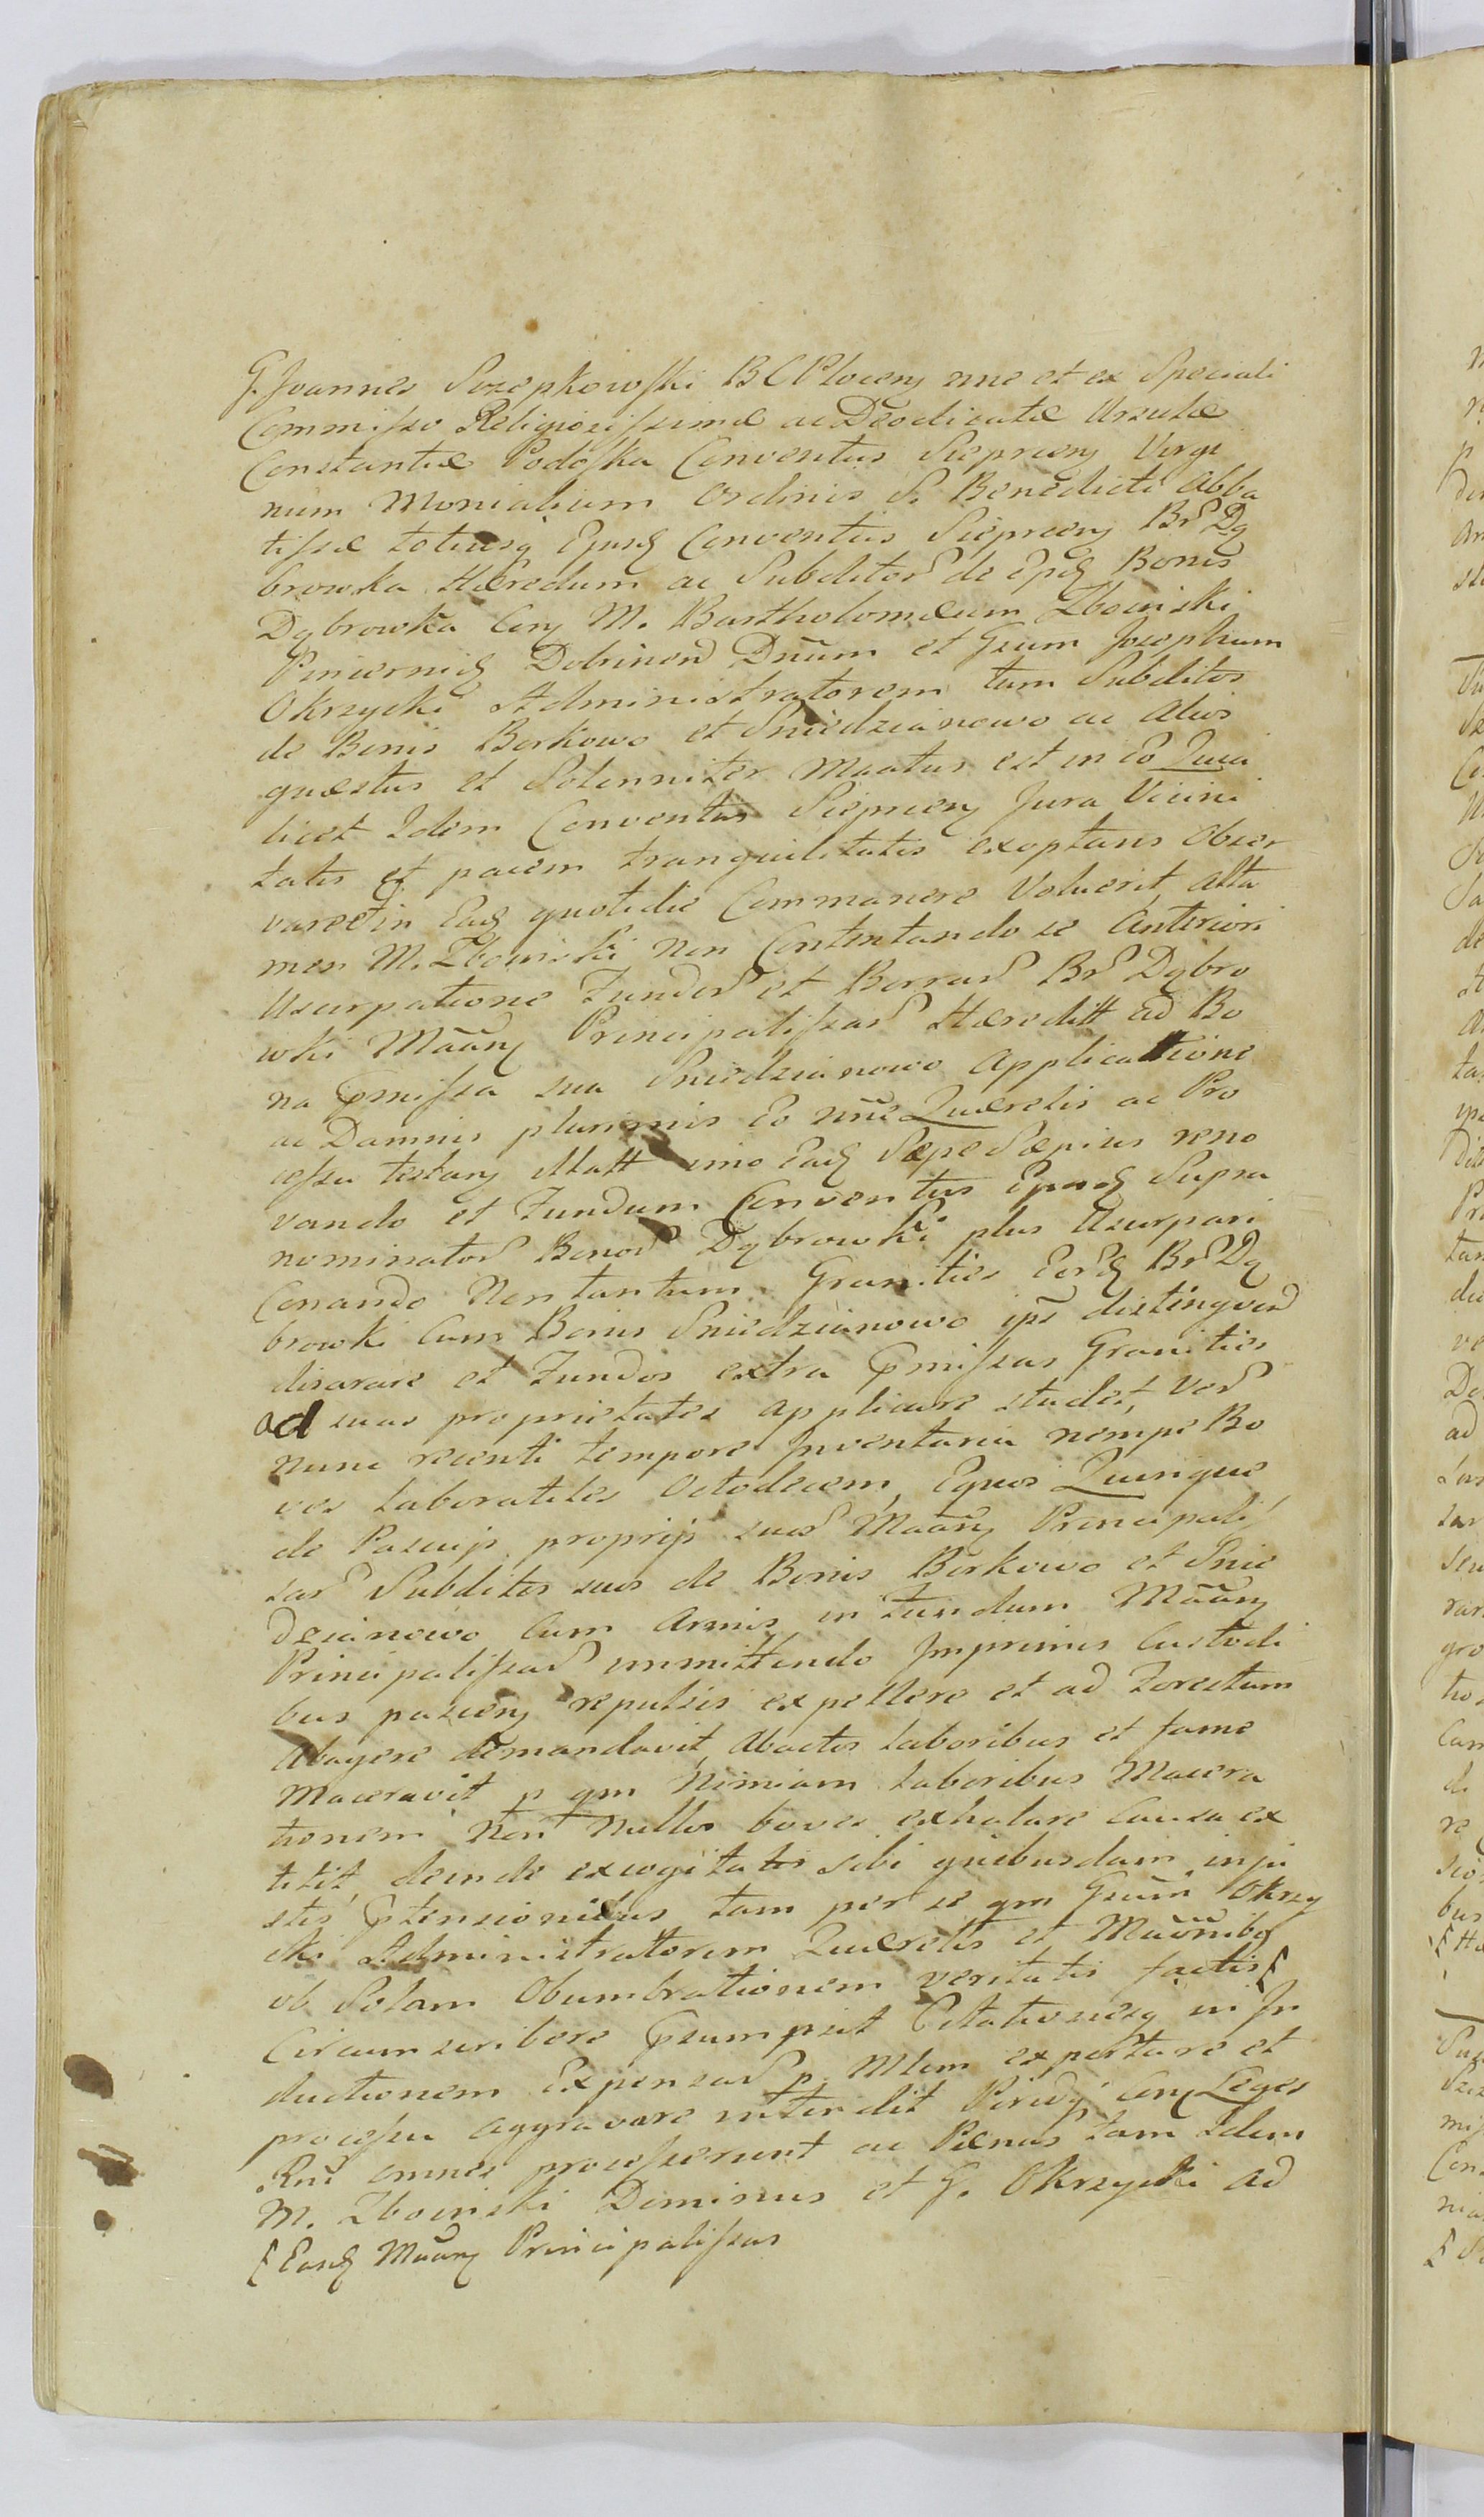 G. Joannes Szczepkowski BCPlocens nne et ex Speciali
Commisso Religiosissimæ ac Deodicatæ Ursulæ
Constantiæ Podoska Conventus Sieprcens Virgi
num Monialium Ordinis S. Benedicti Abba
tissæ totiusq Ejusd Conventus Sieprcens Br Dą
browka Hæredum ac Subditor de Ijsd Bonis
Dąbrowka Con M. Bartholomæum Zboinski
Pincernid Dobrinen Dnum et Gsum Josephum
Okrzycki Administratorem tum Subditos
de Bonis Borkowo et Sniedzianowo ac Alios
quæstus et Solenniter Mãatus est in eo Quia
licet Idem Conventus Sieprcens Jura Vicini
tatis et pacem tranquilitatis exoptans Obser
varet in Ead quotidie Commanere Voluerit, atta
men M. Zboinski non Contentando se Anteriori
Usurpatione Fundor et Borrar Br Dąbro
wki Mãan Principalissar Hæreditt ad Bo
na Pmissa sua Sniedzianowo Applicattione
ac Damnis plurimis Eo nne Querelis ac Pro
cessu testan Illatt imo Ead Sæpe Sæpius reno
vando et Fundum Conventus Ejusd Supra
nominator Bonor Dąbrowki plus Usurpari
Conando Non tantum Granities Eord Br Dą
browki Cum Bonis Sniedzianowo ips distinguen
disarare et Fundos extra Pmissas Granities
ad suas proprietates applicare studet, Ver
nunc recenti tempore Inventaria nempe Bo
ves laboratiles Octodecem, Equos Quinque
de Pascuis proprijs suar Mãan Principalis
sar Subditos suos de Bonis Borkowo et Snie
dzianowo Cum Armis in Fundum Mãan
Principalissar immittendo Imprimis Custodi
bus pascen repulsis expellere et ad Forestum
Abagere demandavit, Abactos laboribus et fame
Maceravit p qm Nimiam laboribus Macera
tionem Non Nullos boves exhalare Causa ex
titit, deinde excogitatis sibi quibusdam inju
stis Ptensionibus tam per se qm Gsum Okrzy
cki Administratorem Querelis et Mãonibq
ob Solam Obumbrationem veritatis factis [
Circumscribere Psumpsit Citationesq in In
ductionem Expensar p Mlem exportare et
processu aggravare intendit Proindq Con Leges
Rni omnes processerunt ac Pænas tam Idem
M. Zboinski Dominus et G. Okrzycki ad
[ Easd Mãan Principalissas